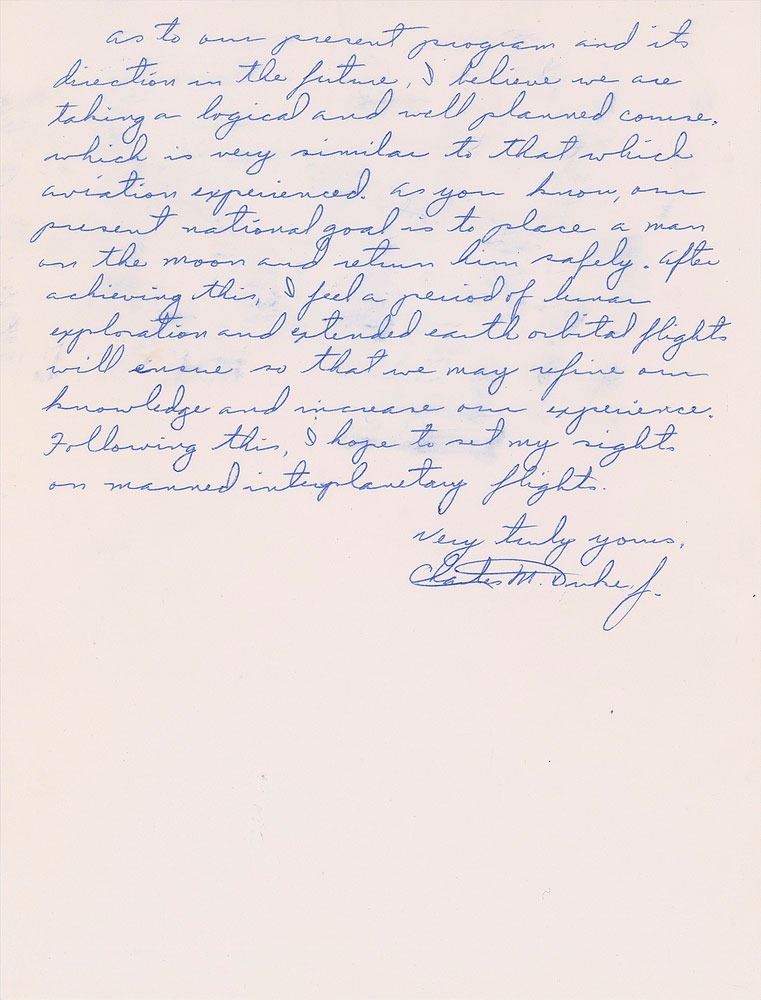 as to our present program and its
direction in the future, I believe we are
taking a logical and well planned course,
which is very similar to that which
aviation experienced. As you know, our
present national goal is to place a man
on the moon and return him safely. After
achieving this, I feel a period of lunar
exploration and extended earth orbital flights
will ensue so that we may refine our
knowledge and increase our experience.
Following this, I hope to set my sights
on manned interplanetary flights.
Very truly yours,
Charles M. Duke Jr.